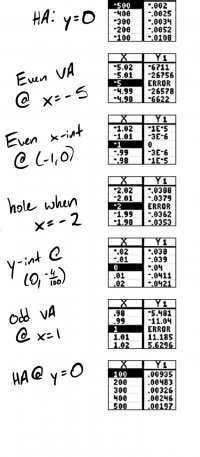 HA: y=0
-500 -.002
-400 -.0025
-300 -.0034
-200 -.0052
-100 -.0108
Even VA
@ x=-5
X Y1
-5.02 -6711
-5.01 -26756
-5 ERROR
-4.99 -26578
-4.98 -6622
Even x-int
@ (-1,0)
X Y1
-1.02 -1E-5
-1.01 -3E-6
-1 0
-.99 -3E-6
-.98 -1E-5
hole when
x=-2
X Y1
-2.02 -.0388
-2.01 -.0379
-2 ERROR
-1.99 -.0362
-1.98 -.0353
y-int @
(0, -4/100)
X Y1
-.02 -.038
-.01 -.039
0 -.04
.01 -.0411
.02 -.0421
odd VA
@ x=1
X Y1
.98 -5.481
.99 -11.04
1 ERROR
1.01 11.185
1.02 5.6296
HA@ y=0
X Y1
100 .00935
200 .00483
300 .00326
400 .00246
500 .00197